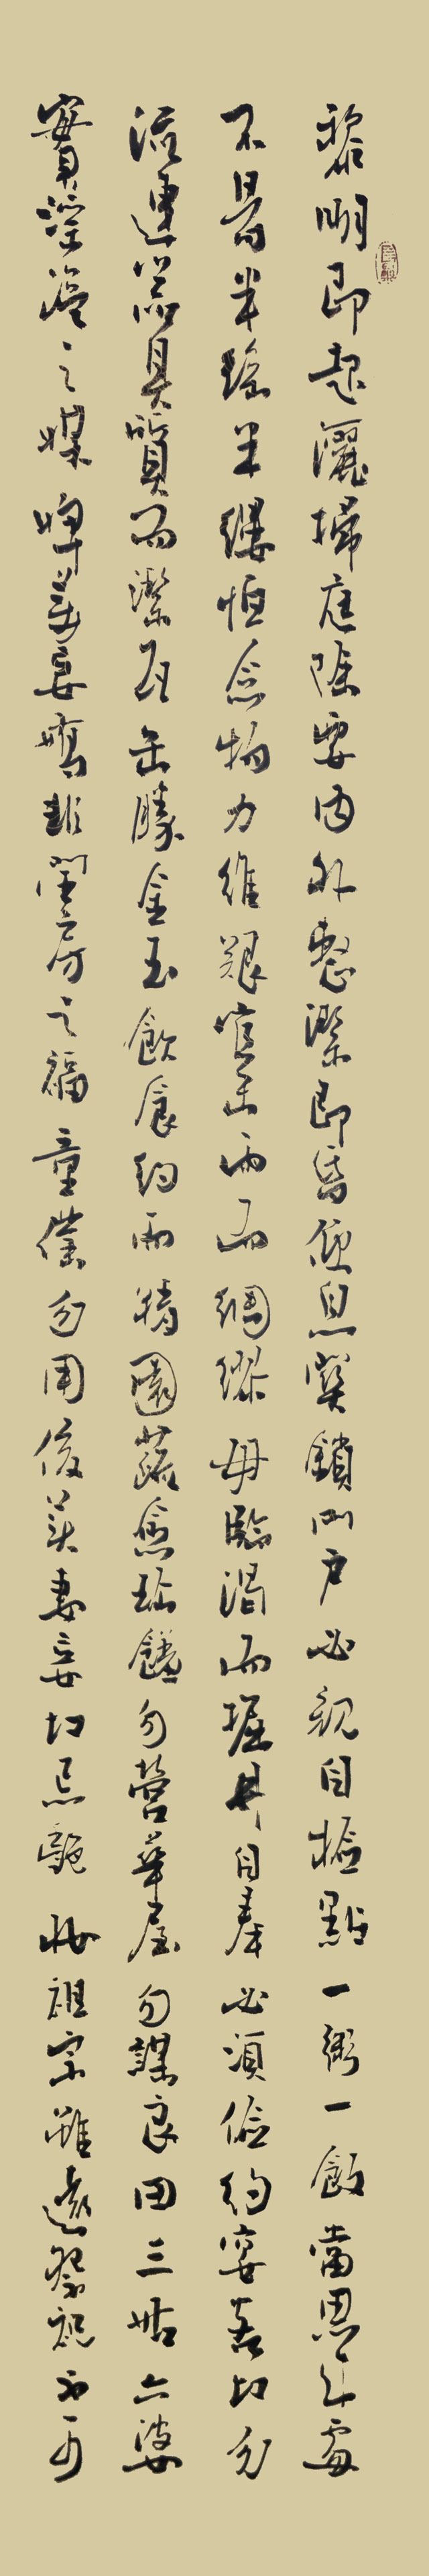 黎明即起灑掃庭除要内外整潔即昏便息關鎖門户必親自檢點一粥一飯當思來處
不易半絲半縷恒念物力維艱宜未雨而綢繆毋臨渴而掘井自奉必須儉約宴客切勿
流連器具質而潔瓦缶勝金玉飲食約而精園蔬愈珍饈勿營華屋勿謀良田三姑六婆
實淫盜之媒婢美妾嬌非閨房之福童僕勿用俊美妻妾切忌艷妝祖宗雖遠祭祀不可